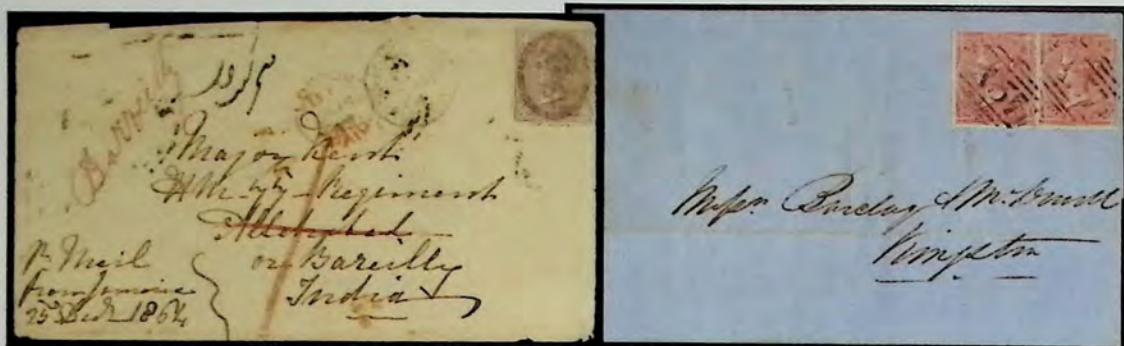 Bareilly
Major Kent
HM 77 Regiment
Allahabad
or Bareilly
India
p Mail
from Jamaica
25 Decr 1864
Messrs Barclay & McDowell
Kingston